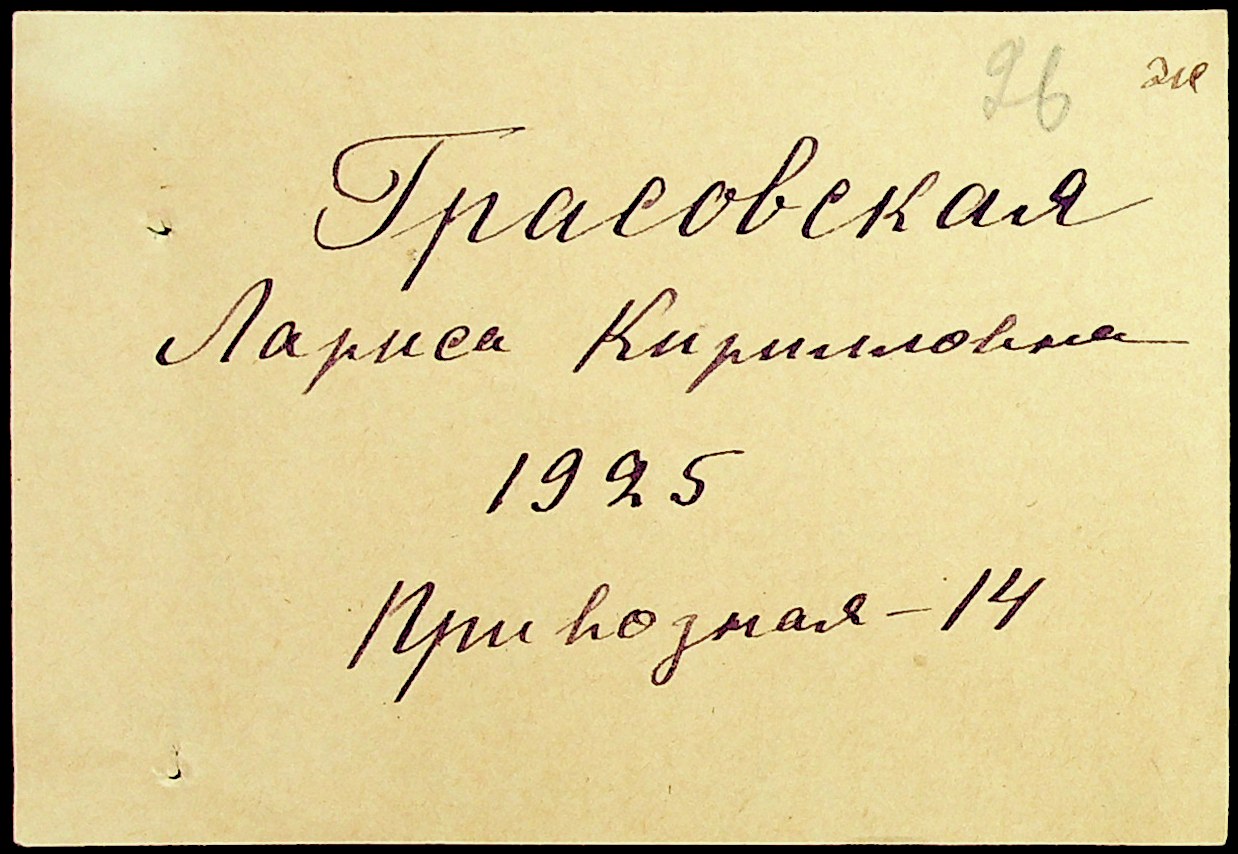 96 же
Грасовская
Лариса Кирилловна
1925
Привозная - 14